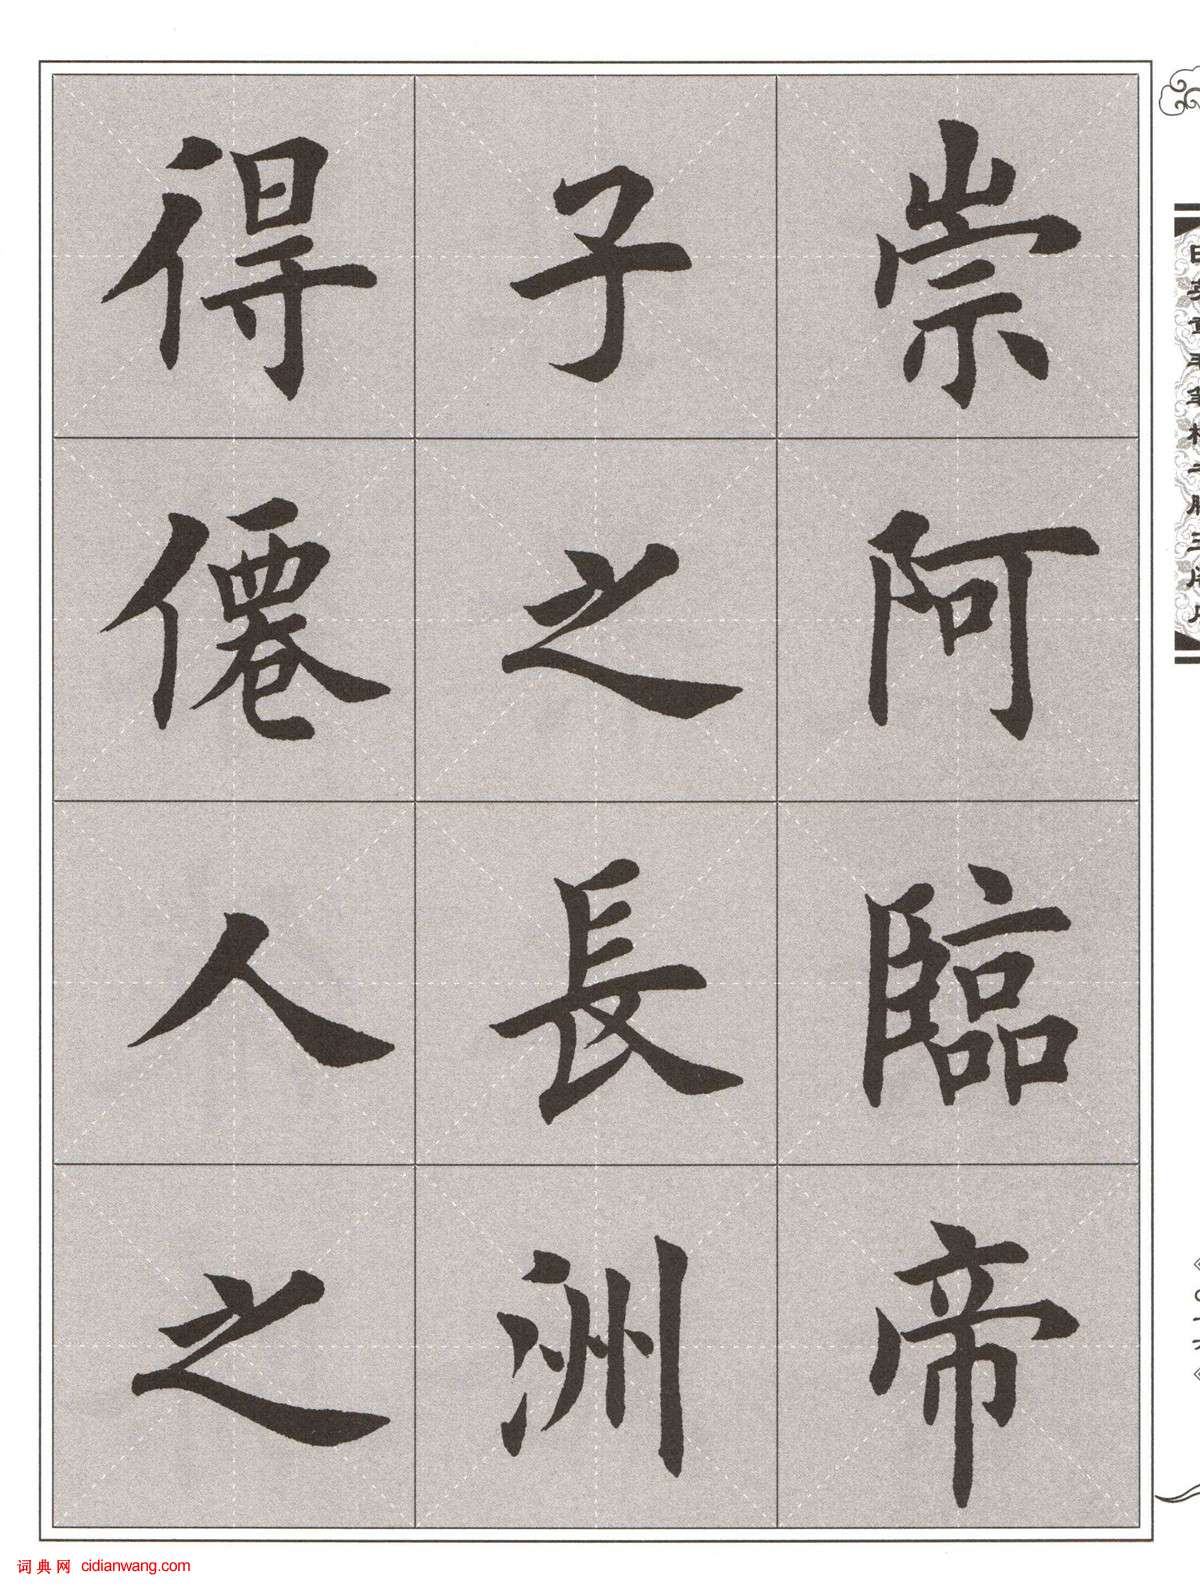 崇阿臨帝
子之長洲
得僊人之
词典网 cidianwang.com